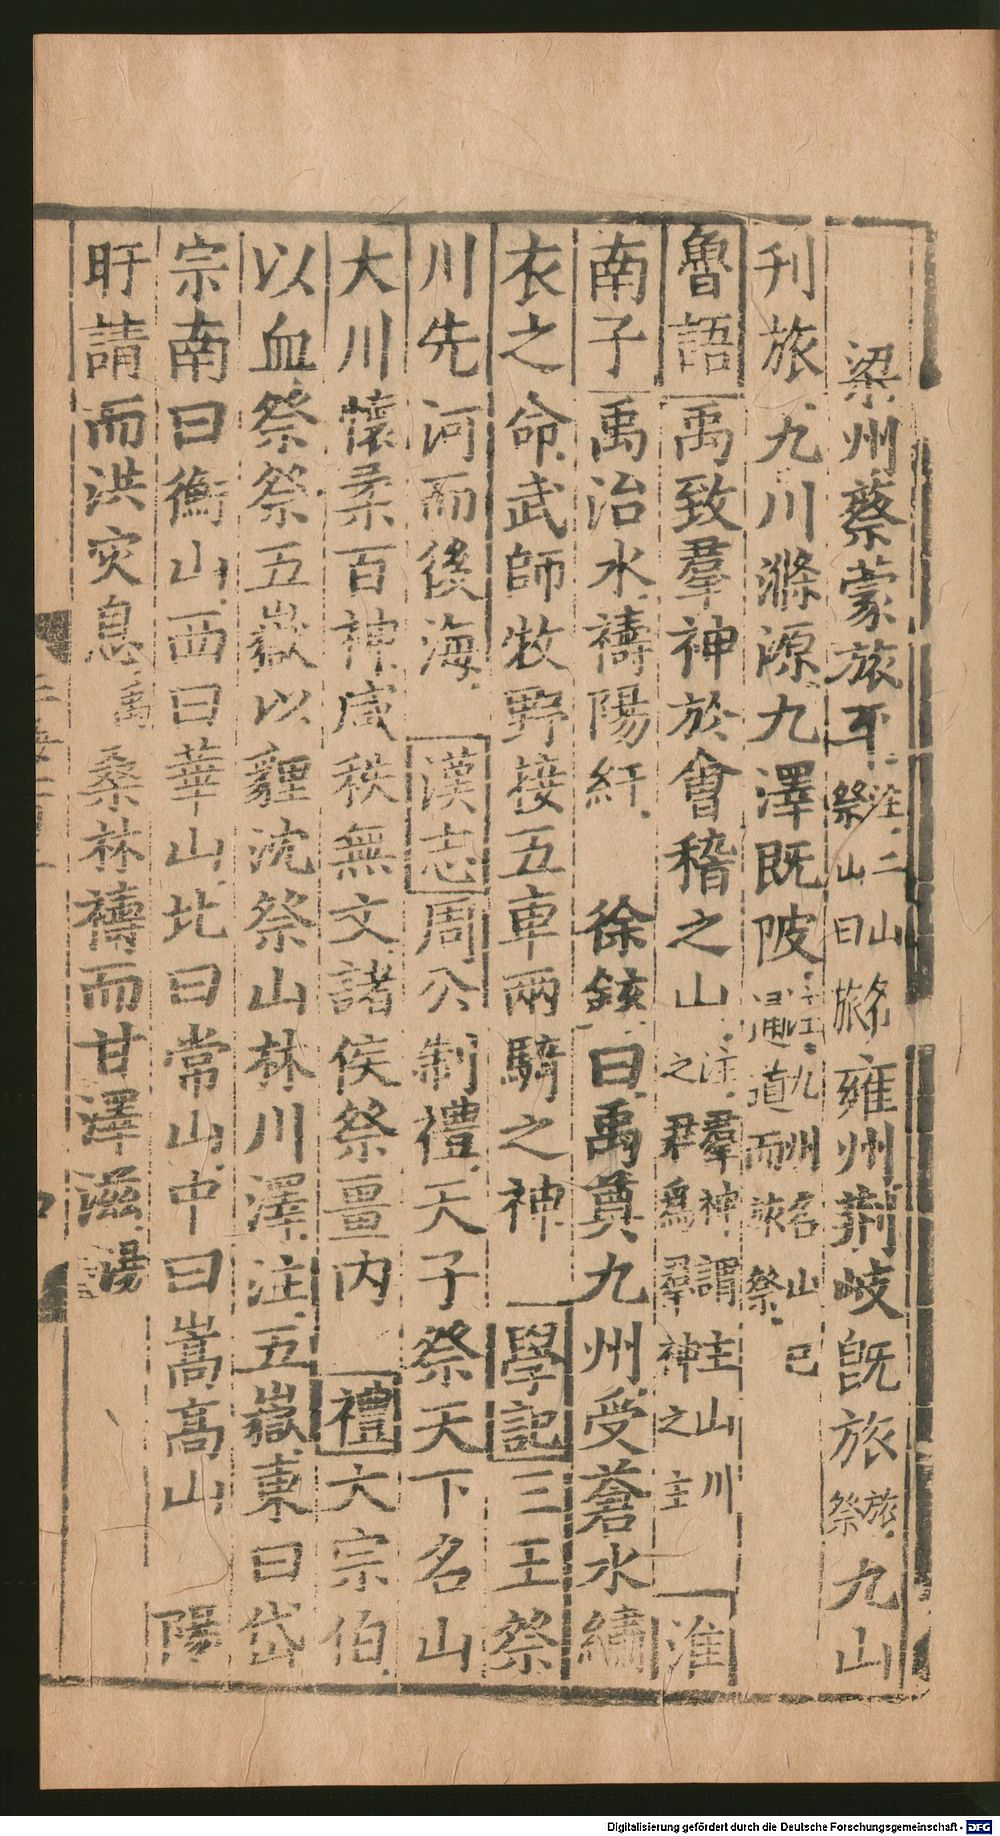 梁州蔡蒙旅平注二山名祭山曰旅雍州荆岐旣旅旅祭九山
刋旅九川滌源九澤旣陂注九州名山已通道而旅祭
魯語禹致羣神於會稽之山注羣神謂主山川之君爲羣神之主淮
南子禹治水禱陽紆徐鉉曰禹奠九州受蒼水繡
衣之命武師牧野接五車兩騎之神學記三王祭
川先河而後海漢志周公制禮天子祭天下名山
大川懷柔百神咸秩無文諸侯祭畺内禮大宗伯
以血祭祭五嶽以貍沈祭山林川澤注五嶽東曰岱
宗南曰衡山西曰華山北曰常山中曰嵩高山陽
盱請而洪灾息禹桑林禱而甘澤滋湯
Digitalisierung gefördert durch die Deutsche Forschungsgemeinschaft - DFG